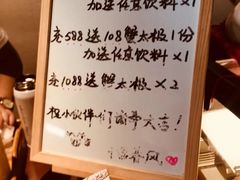 加送任意饮料×1
充588送108蟹太极1份
加送任意饮料×1
充1088送蟹太极×2
祝小伙伴们新年大吉!